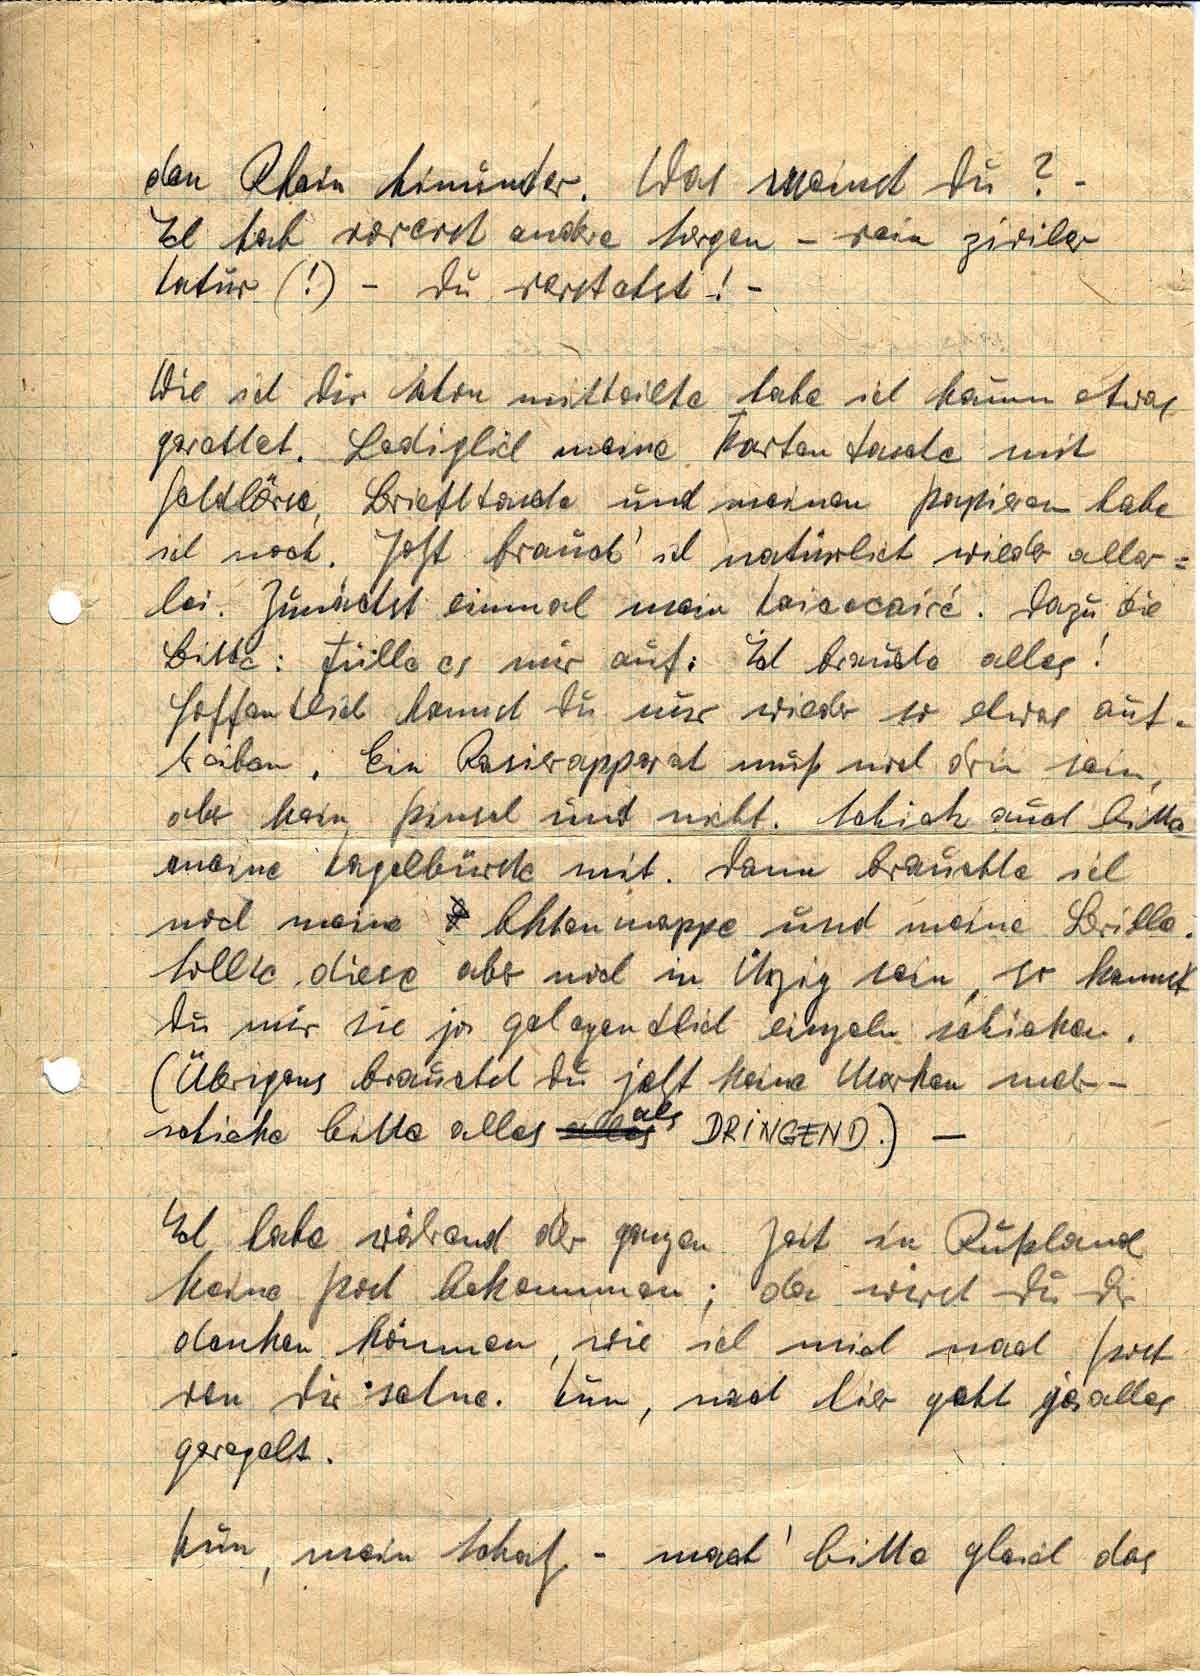 den Rhein hinunter. Was meinst Du? -
Ich hab vorerst andere Sorgen - rein ziviler
Natur (!) - Du verstehst! -
Wie ich Dir schon mitteilte habe ich kaum etwas
gerettet. Lediglich meine Kartentasche mit
Geldbörse, Brieftasche und meinen Papieren habe
ich noch. Jetzt brauch' ich natürlich wieder aller=
lei. Zunächst einmal mein Necessaire. Dazu die
Bitte: Fülle es mir auf. Ich brauche alles!
Hoffentlich kannst Du nur wieder so etwas auf-
treiben. Ein Rasierapparat muß noch drin sein,
aber kein Pinsel und nicht. Schick auch bitte
meine Nagelbürste mit. Dann brauchte ich
noch meine Aktenmappe und meine Brille.
Sollte diese aber noch in Ürzig sein, so kannst
Du mir sie ja gelegentlich einzeln schicken.
(Übrigens brauchst Du jetzt keine Marken mehr -
schicke bitte alles als DRINGEND.) —
Ich habe während der ganzen Zeit in Rußland
keine Post bekommen; da wirst Du Dir
denken können, wie ich mich nach Post
von Dir sehne. Nun, nach hier geht ja alles
geregelt.
Nun, mein Schatz, - mach' bitte gleich das